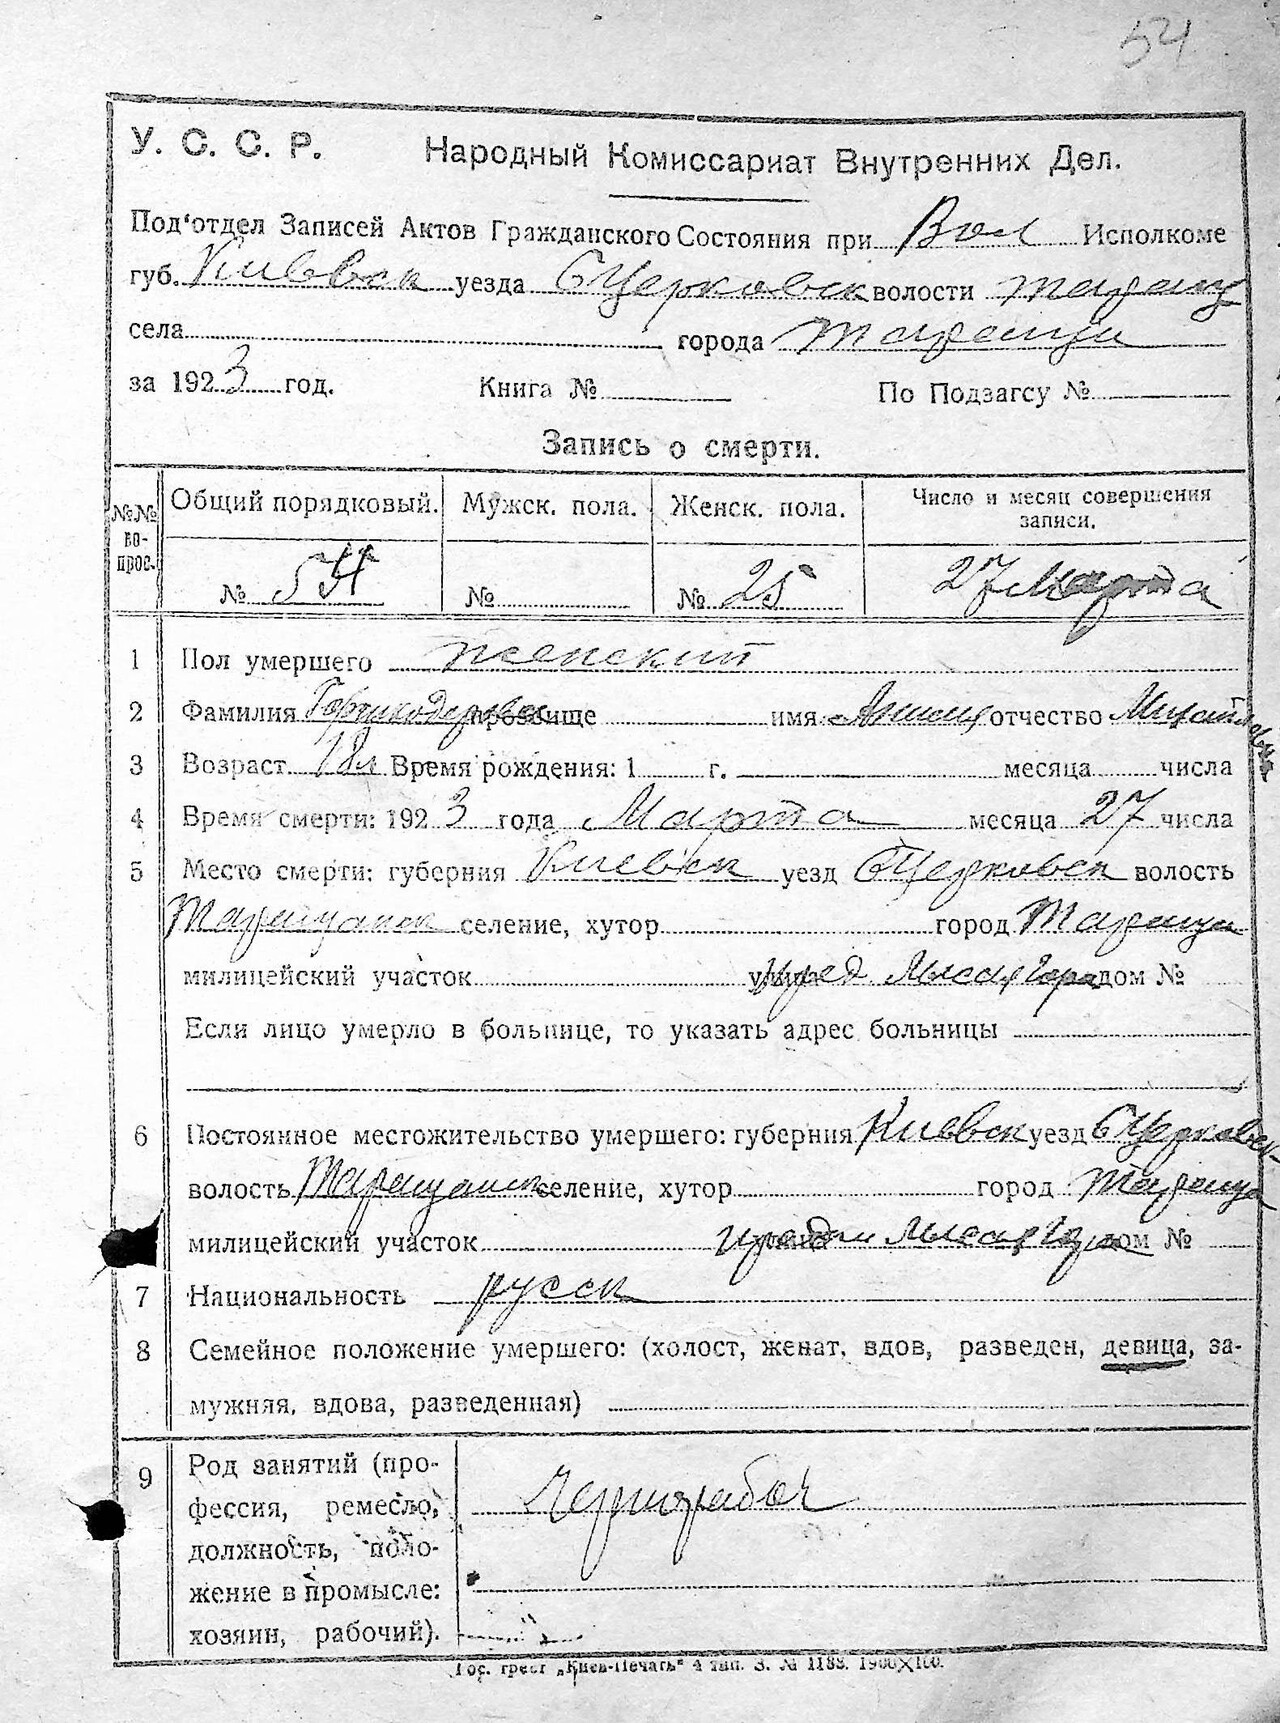 54
У. С. С. Р. Народный Комиссариат Внутренних Дел.
Под'отдел Записей Актов Гражданского Состояния при Вол Исполкоме
губ. Киевск уезда БЦерковск волости Таращ
села города Таращи
за 1923 год. Книга № По Подзагсу №
Запись о смерти.
№№ вопрос. Общий порядковый. Мужск. пола. Женск. пола. Число и месяц совершения записи.
№ 54 № № 25 27 Марта
1 Пол умершего женский
2 Фамилия прозвище имя отчество Михайловна
3 Возраст 18л Время рождения: 1 г. месяца числа
4 Время смерти: 1923 года Марта месяца 27 числа
5 Место смерти: губерния Киевск уезд БЦерковск волость
Таращанск селение, хутор город Таращи
милицейский участок улица пред Лысая Гора дом №
Если лицо умерло в больнице, то указать адрес больницы
6 Постоянное местожительство умершего: губерния Киевск уезд БЦерковск
волость Таращанск селение, хутор город Таращи
милицейский участок Лысая Гора дом №
7 Национальность русск
8 Семейное положение умершего: (холост, женат, вдов, разведен, девица, за-
мужняя, вдова, разведенная)
9 Род занятий (про-
фессия, ремесло, Чернорабоч
должность, поло-
жение в промысле:
хозяин, рабочий).
Гос. трест „Киев-Печать" 4 тип. З. № 1188. 1900×100.